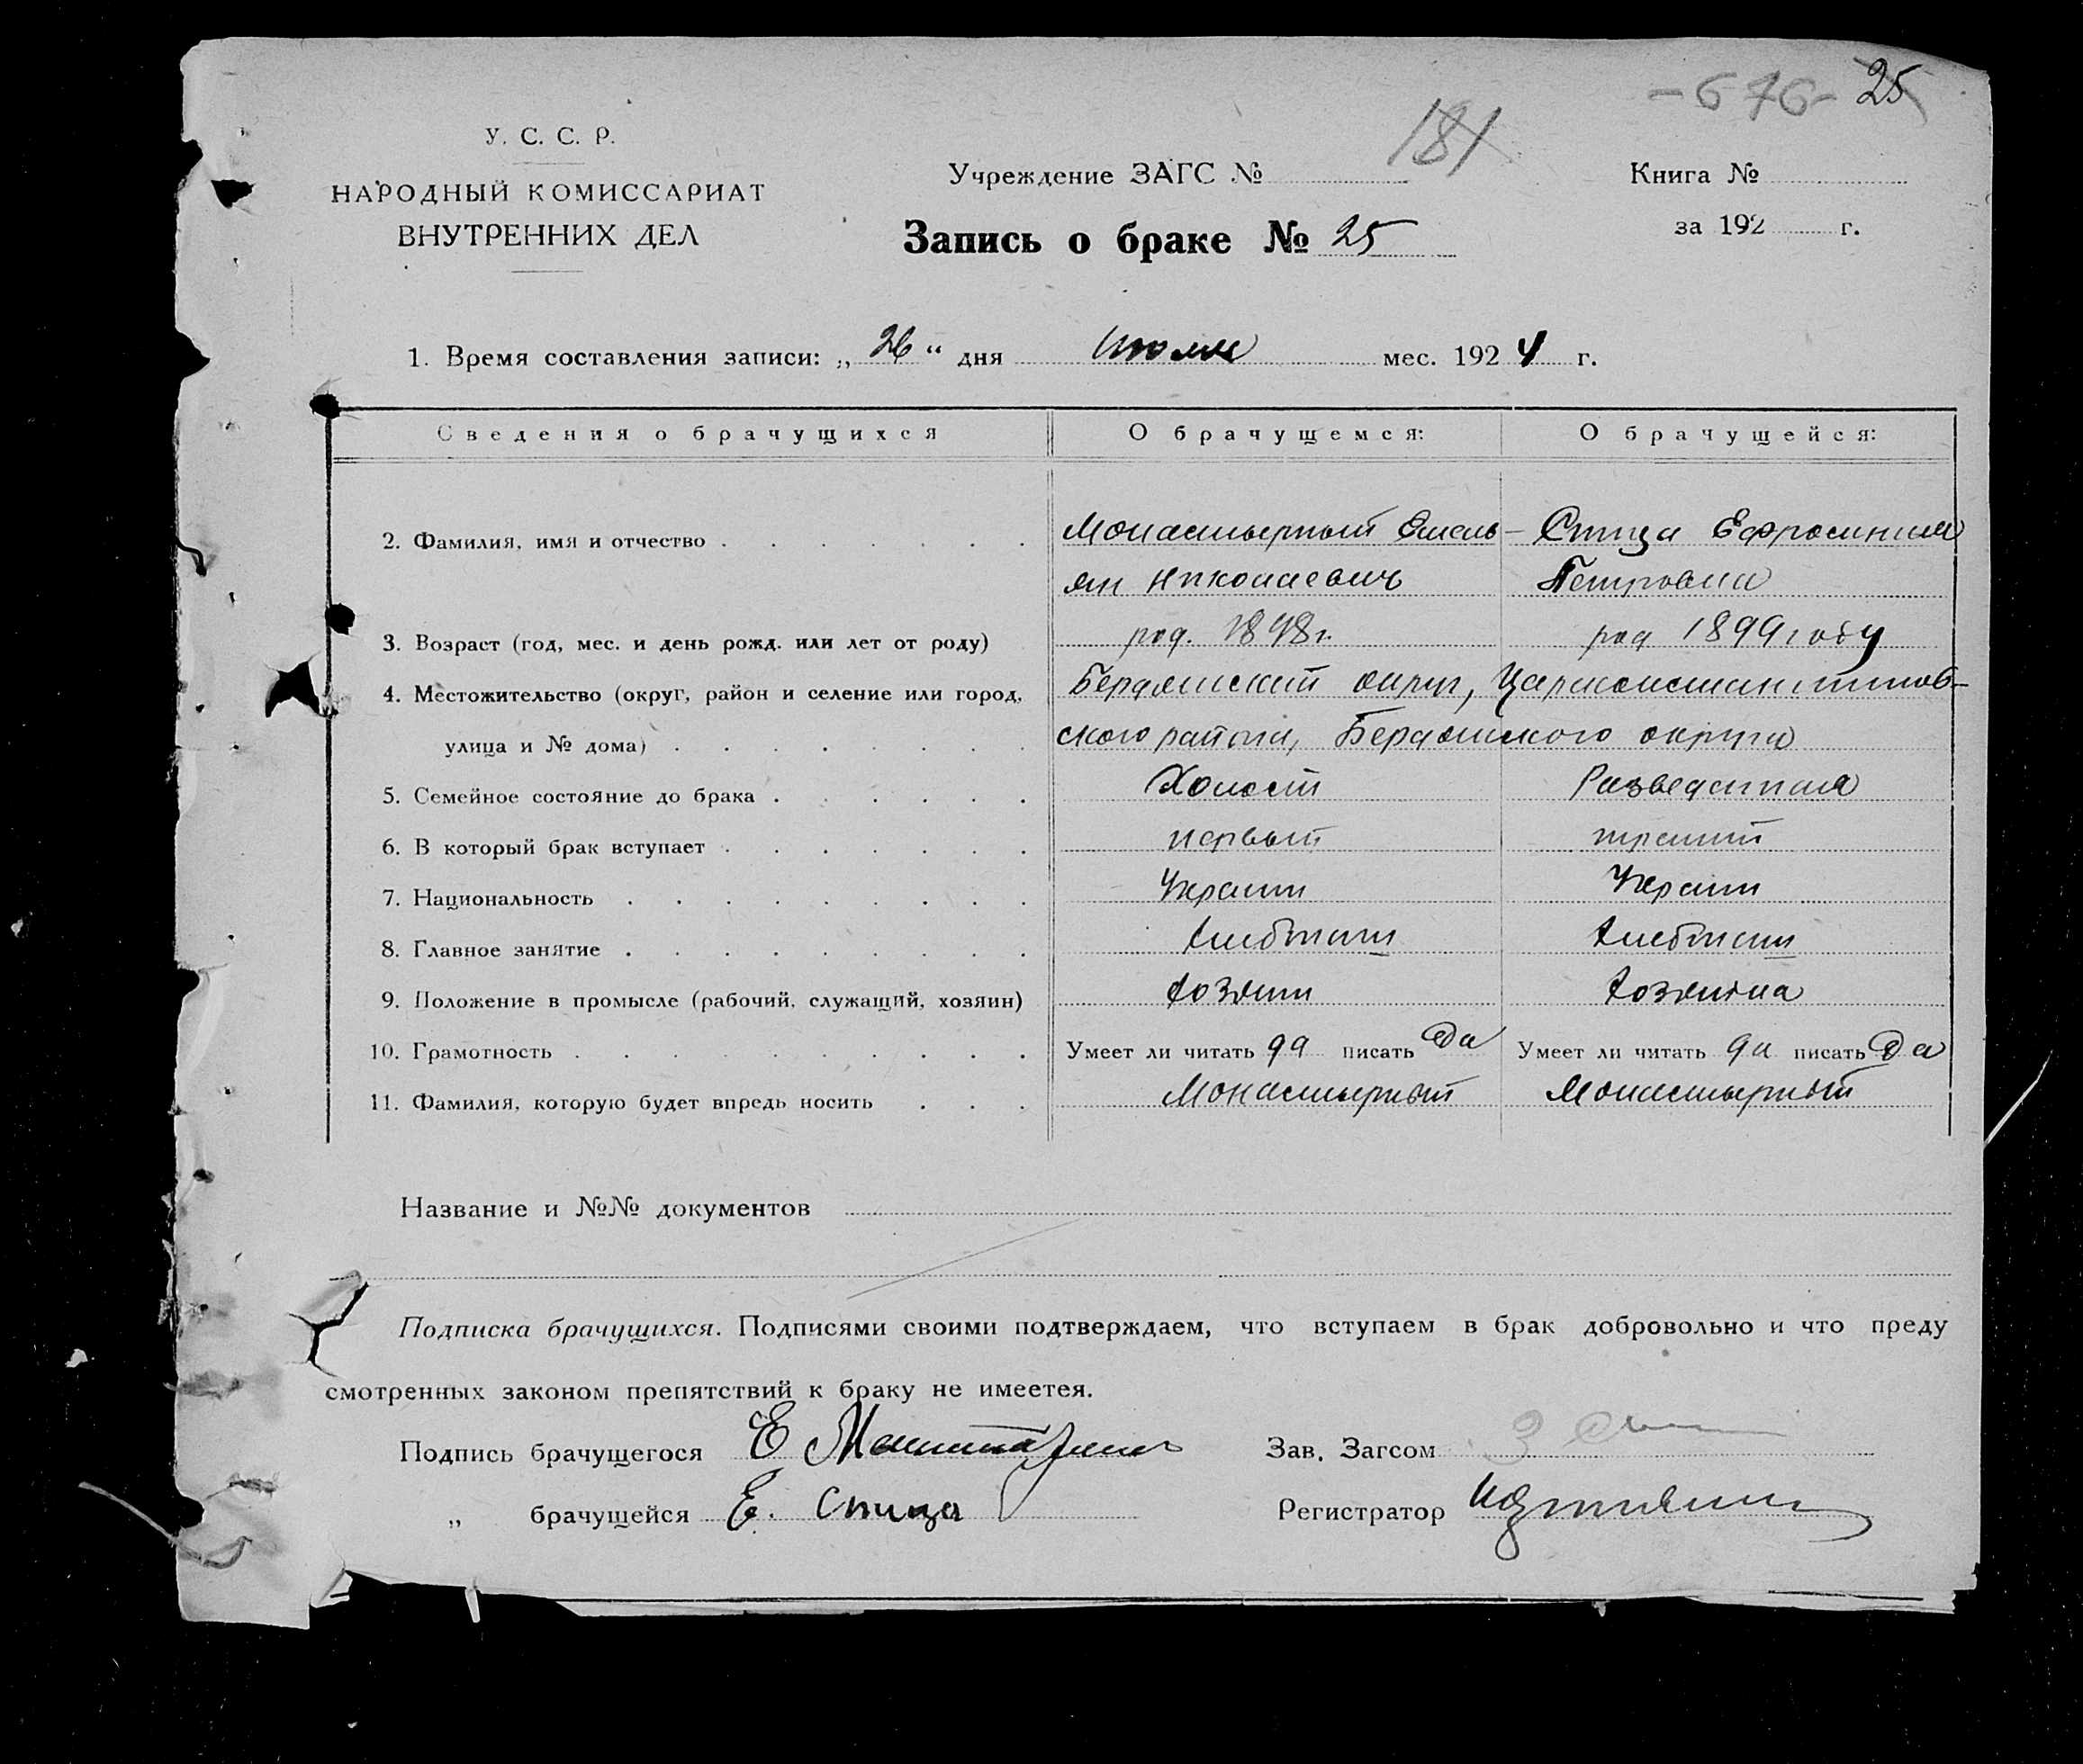 -676- 25
181
У. С. С. Р.
НАРОДНЫЙ КОМИССАРИАТ
ВНУТРЕННИХ ДЕЛ
Учреждение ЗАГС №
Книга №
за 192 г.
Запись о браке № 25
1. Время составления записи: „ 26 “ дня мес. 1924 г.
Сведения о брачущихся О брачущемся: О брачущейся:
2. Фамилия, имя и отчество Монастырный Омель- Спица Ефросиния
ян Николаевич Петровна
3. Возраст (год, мес. и день рожд. или лет от роду) род. 1898 г. род 1899 году
4. Местожительство (округ, район и селение или город, Бердянский округ, Цареконстантинов-
улица и № дома) ского района, Бердянского округа
5. Семейное состояние до брака Холост Разведенная
6. В который брак вступает первый третий
7. Национальность Украин Украин
8. Главное занятие Хлебпаш Хлебпаш
9. Положение в промысле (рабочий, служащий, хозяин) хозяин хозяйка
10. Грамотность Умеет ли читать да писать Да Умеет ли читать да писать Да
11. Фамилия, которую будет впредь носить Монастырный Монастырный
Название и №№ документов
Подписка брачущихся. Подписями своими подтверждаем, что вступаем в брак добровольно и что преду
смотренных законом препятствий к браку не имеетея.
Подпись брачущегося Е Зав. Загсом
„ брачущейся Е. Спица Регистратор